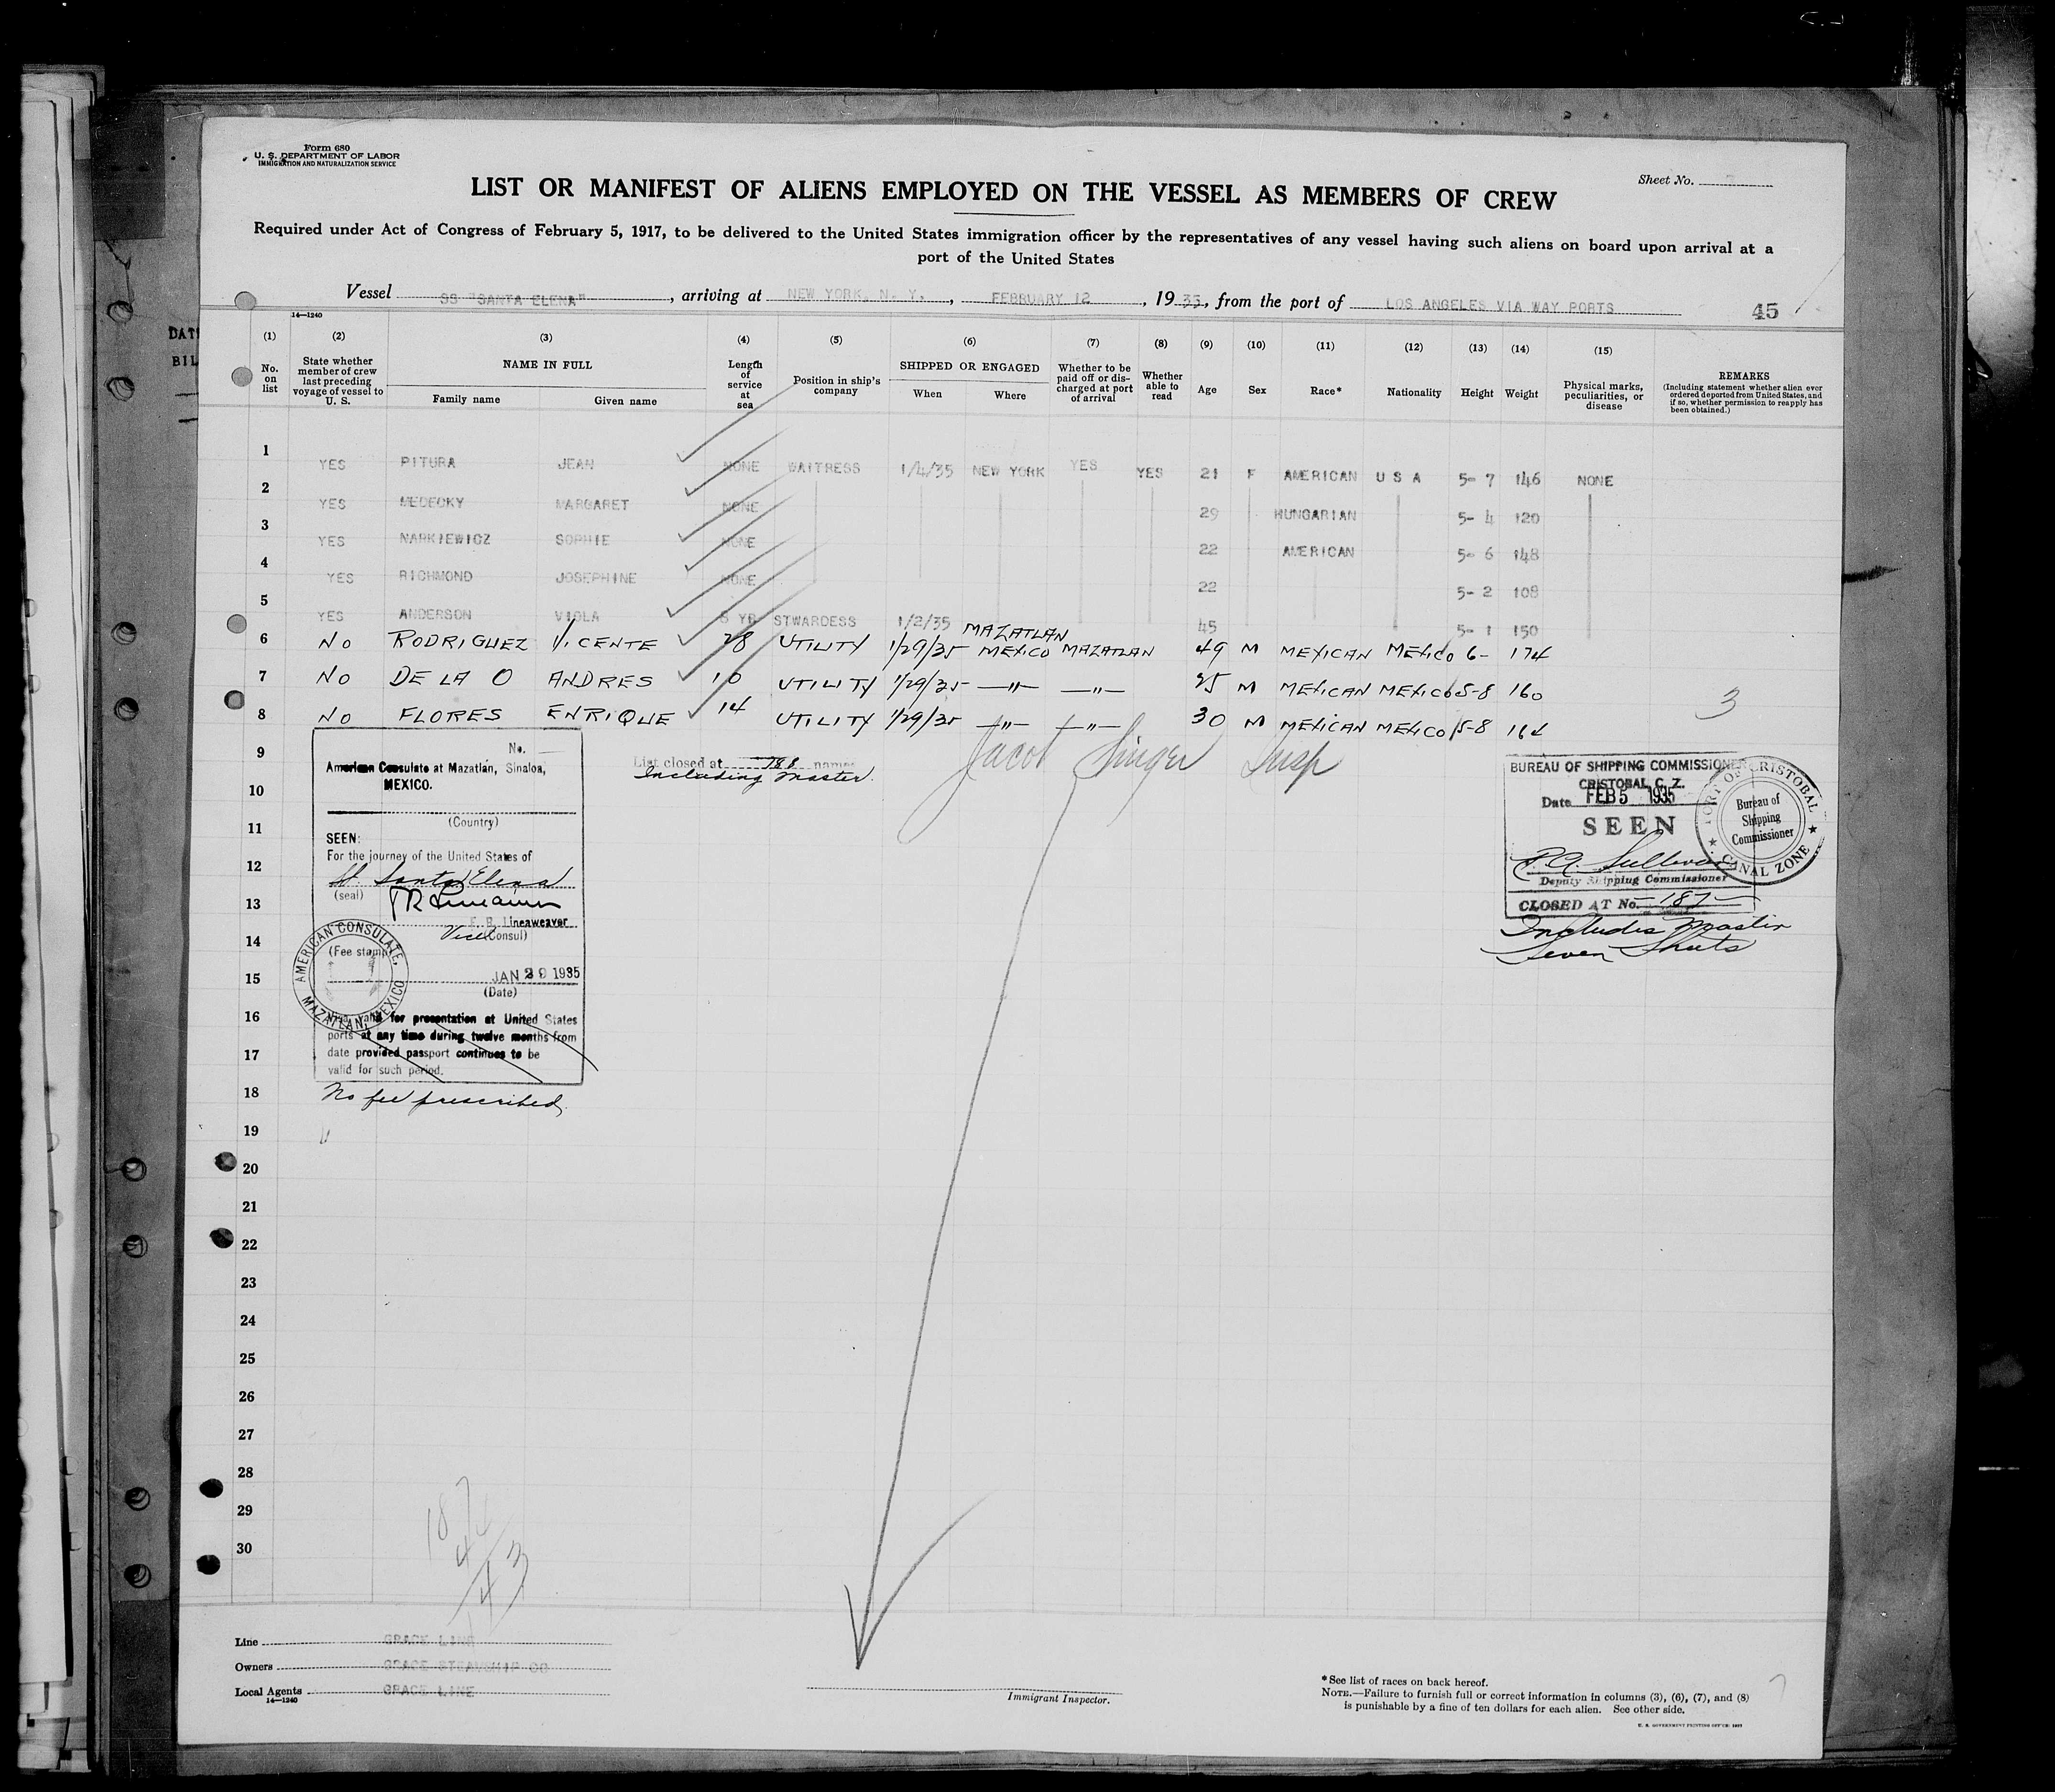 Form 680
U. S. DEPARTMENT OF LABOR
IMMIGRATION AND NATURALIZATION SERVICE
Sheet No.
LIST OR MANIFEST OF ALIENS EMPLOYED ON THE VESSEL AS MEMBERS OF CREW
Required under Act of Congress of February 5, 1917, to be delivered to the United States immigration officer by the representatives of any vessel having such aliens on board upon arrival at a
port of the United States
Vessel SS "SANTA ELENA", arriving at NEW YORK, N. Y., FEBRUARY 12, 1935, from the port of LOS ANGELES VIA WAY PORTS
45
14—1240
(1) (2) (3) (4) (5) (6) (7) (8) (9) (10) (11) (12) (13) (14) (15)
No. on list
State whether member of crew last preceding voyage of vessel to U. S.
NAME IN FULL
Family name Given name
Length of service at sea
Position in ship's company
SHIPPED OR ENGAGED
When Where
Whether to be paid off or discharged at port of arrival
Whether able to read
Age Sex Race* Nationality Height Weight
Physical marks, peculiarities, or disease
REMARKS
(Including statement whether alien ever ordered deported from United States, and if so, whether permission to reapply has been obtained.)
1 YES PITURA JEAN NONE WAITRESS 1/4/35 NEW YORK YES YES 21 F AMERICAN U S A 5- 7 146 NONE
2 YES MEDECKY MARGARET NONE 29 HUNGARIAN 5- 4 120
3 YES NARKIEWICZ SOPHIE NONE 22 AMERICAN 5- 6 148
4 YES RICHMOND JOSEPHINE NONE 22 5- 2 108
5 YES ANDERSON VIOLA YR STWARDESS 1/2/35 45 5- 1 150
6 NO RODRIGUEZ VICENTE 28 UTILITY 1/29/35 MAZATLAN MEXICO MAZATLAN 49 M MEXICAN MEXICO 6- 174
7 NO DE LA O ANDRES 10 UTILITY 1/29/35 —"— —"— 25 M MEXICAN MEXICO 5-8 160
8 NO FLORES ENRIQUE 14 UTILITY 1/29/35 —"— —"— 30 M MEXICAN MEXICO 5-8 164
3
9
10
11
12
13
14
15
16
17
18
19
20
21
22
23
24
25
26
27
28
29
30
No.
American Consulate at Mazatlán, Sinaloa,
MEXICO.
(Country)
SEEN:
For the journey of the United States of
SS. Santa Elena
(seal)
Lineaweaver
Vice Consul)
(Fee stamp)
JAN 29 1935
(Date)
AMERICAN CONSULATE, MAZATLAN, MEXICO
valid for presentation at United States
ports at any time during twelve months from
date provided passport continues to be
valid for such period.
No fee prescribed.
List closed at 188 names
Including Master.
Jacob Singer Insp
BUREAU OF SHIPPING COMMISSIONER
CRISTOBAL, C. Z.
Date FEB 5 1935
SEEN
Sullivan
Deputy Shipping Commissioner
CLOSED AT No. 187
Includes Master
Seven Sheets
PORT OF CRISTOBAL
Bureau of
Shipping
Commissioner
CANAL ZONE
187
143
Line GRACE LINE
Owners GRACE STEAMSHIP CO
Local Agents GRACE LINE
14—1240
Immigrant Inspector.
*See list of races on back hereof.
NOTE.—Failure to furnish full or correct information in columns (3), (6), (7), and (8)
is punishable by a fine of ten dollars for each alien. See other side.
7
DAT
BIL